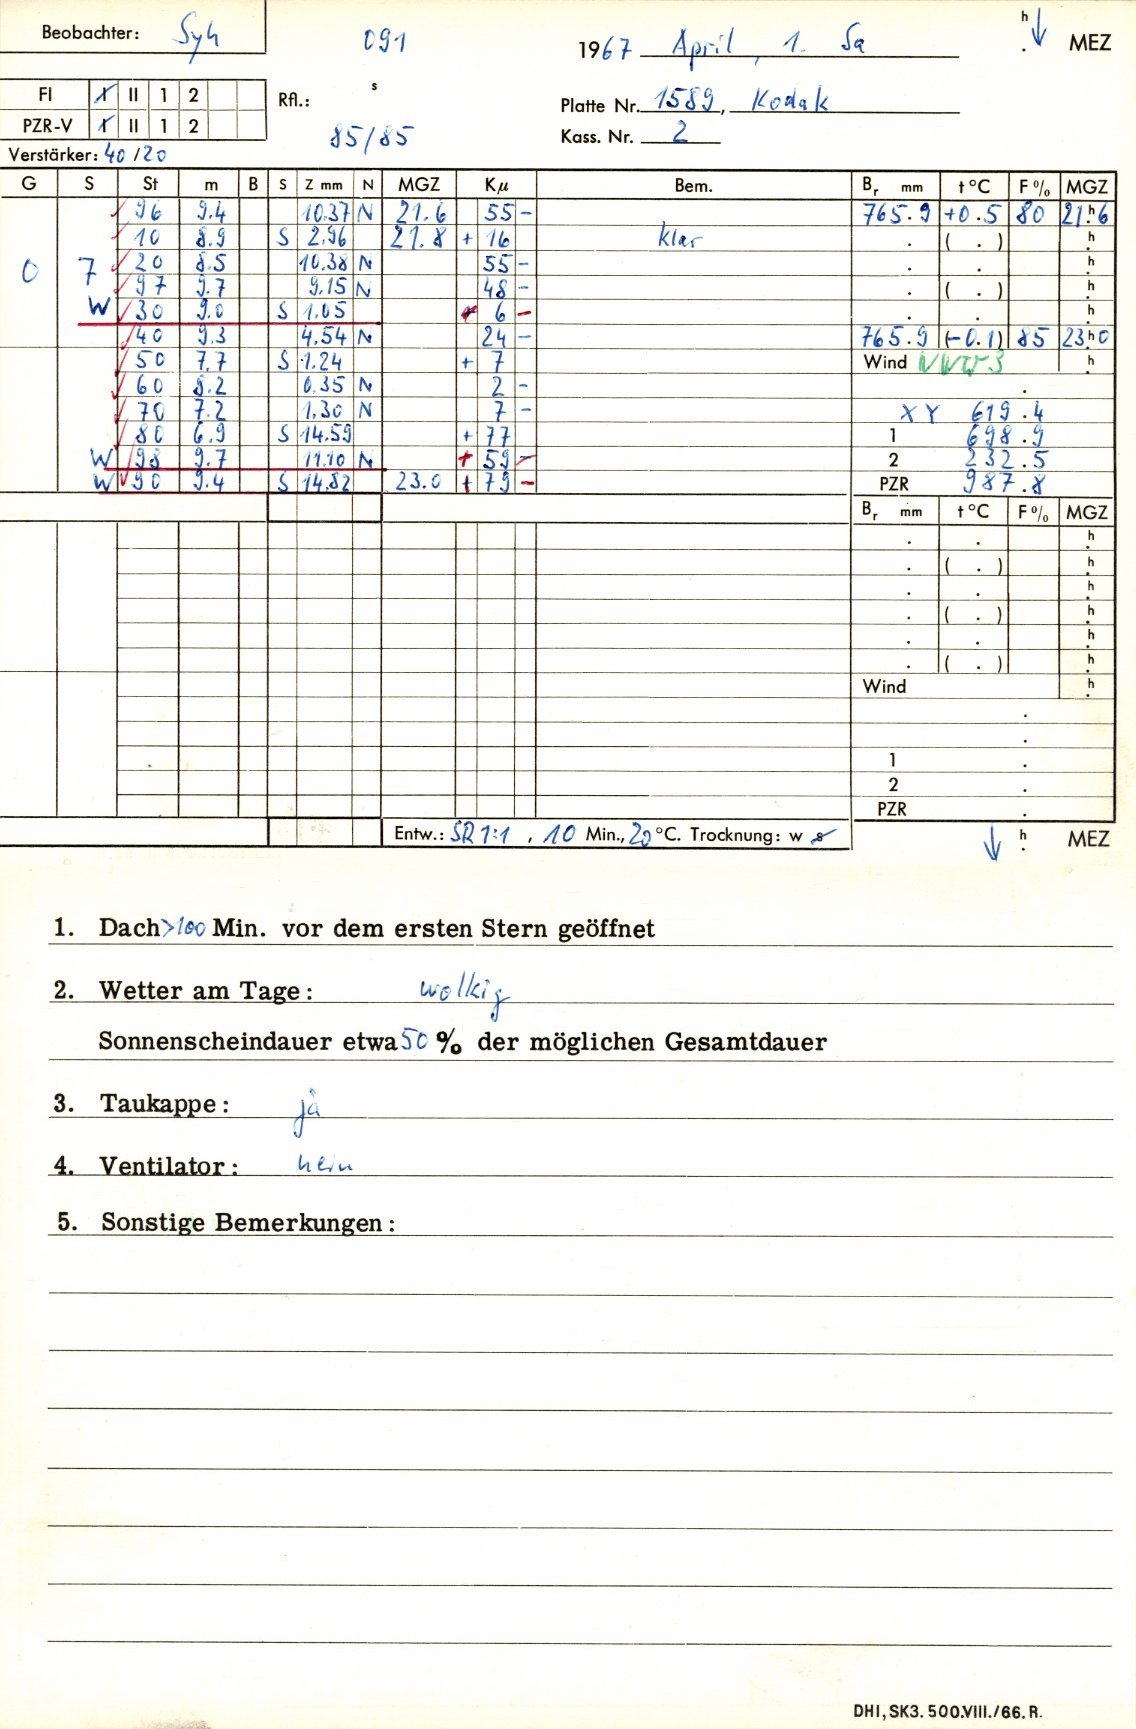 Beobachter: Syh 091 1967 April, 1. Sa h . ↓ MEZ
FI I II 1 2 Rfl.: s Platte Nr. 1589, Kodak
PZR-V I II 1 2 85/85 Kass. Nr. 2
Verstärker: 40/20
G S St m B S Z mm N MGZ Kμ Bem. Br mm t °C F % MGZ
96 9.4 10.37 N 21.6 55 - 765.9 +0.5 80 21h6
10 8.9 S 2.96 21.8 + 16 klar . ( . ) h.
0 7 20 8.5 10.38 N 55 - . . h.
97 9.7 9.15 N 48 - . ( . ) h.
W 30 9.0 S 1.05 + 6 - . . h.
40 9.3 4.54 N 24 - 765.9 (-0.1) 85 23h0
50 7.7 S 1.24 + 7 Wind NWW 3 h.
60 8.2 0.35 N 2 - .
70 7.2 1.30 N 7 - X Y 619.4
80 6.9 S 14.59 + 77 1 698.9
W 98 9.7 11.10 N + 59 - 2 232.5
W 90 9.4 S 14.82 23.0 + 79 - PZR 987.8
Br mm t °C F % MGZ
. . h.
. ( . ) h.
. . h.
. ( . ) h.
. . h.
. ( . ) h.
Wind h.
.
.
1 .
2 .
PZR .
Entw.: SR 1:1, 10 Min., 20 °C. Trocknung: w s ↓ h . MEZ
1. Dach >100 Min. vor dem ersten Stern geöffnet
2. Wetter am Tage: wolkig
Sonnenscheindauer etwa 50 % der möglichen Gesamtdauer
3. Taukappe: ja
4. Ventilator: nein
5. Sonstige Bemerkungen:
DHI, SK3. 500.VIII./66. R.